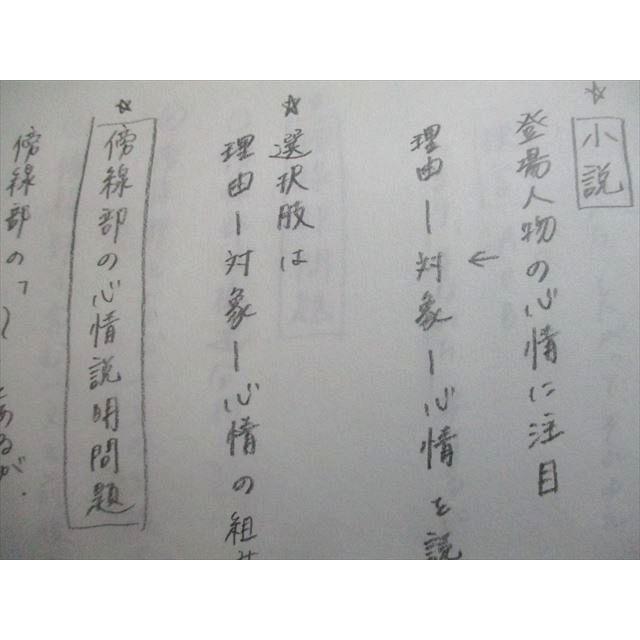 ☆
小説
登場人物の心情に注目
↓
理由ー対象ー心情を説
☆選択肢は
理由ー対象ー心情の組
☆
傍線部の心情説明問題
傍線部の「〜」とあるが、